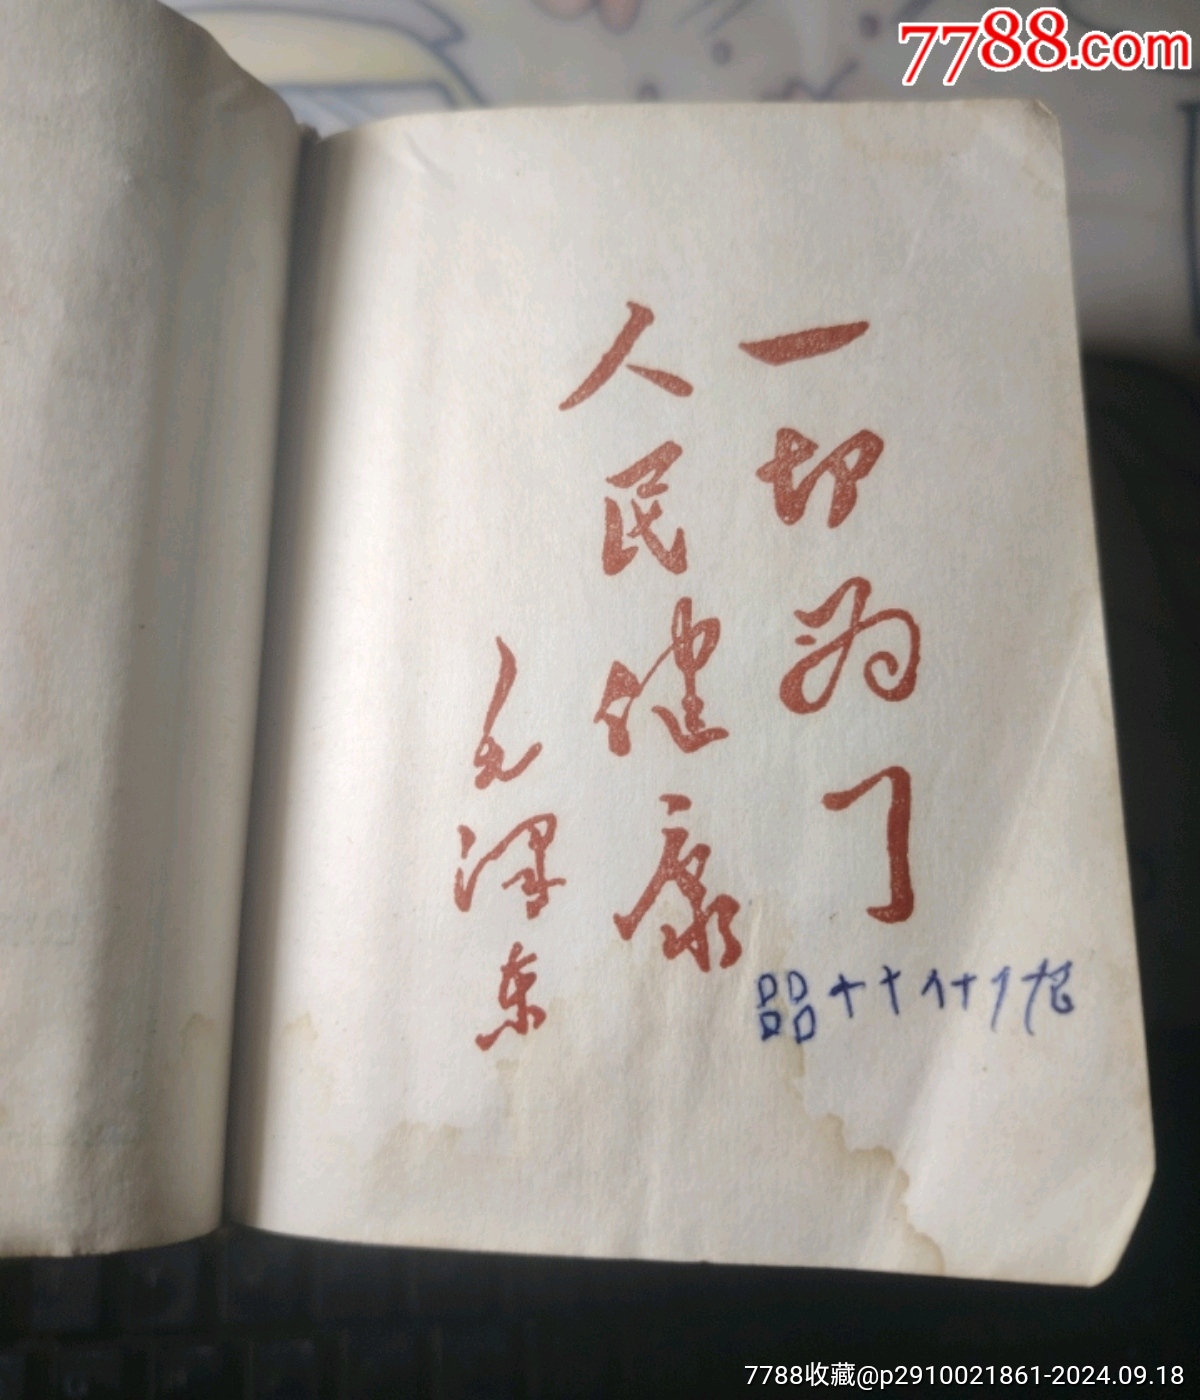 7788.com
一切为了
人民健康
毛泽东
7788收藏@p2910021861-2024.09.18